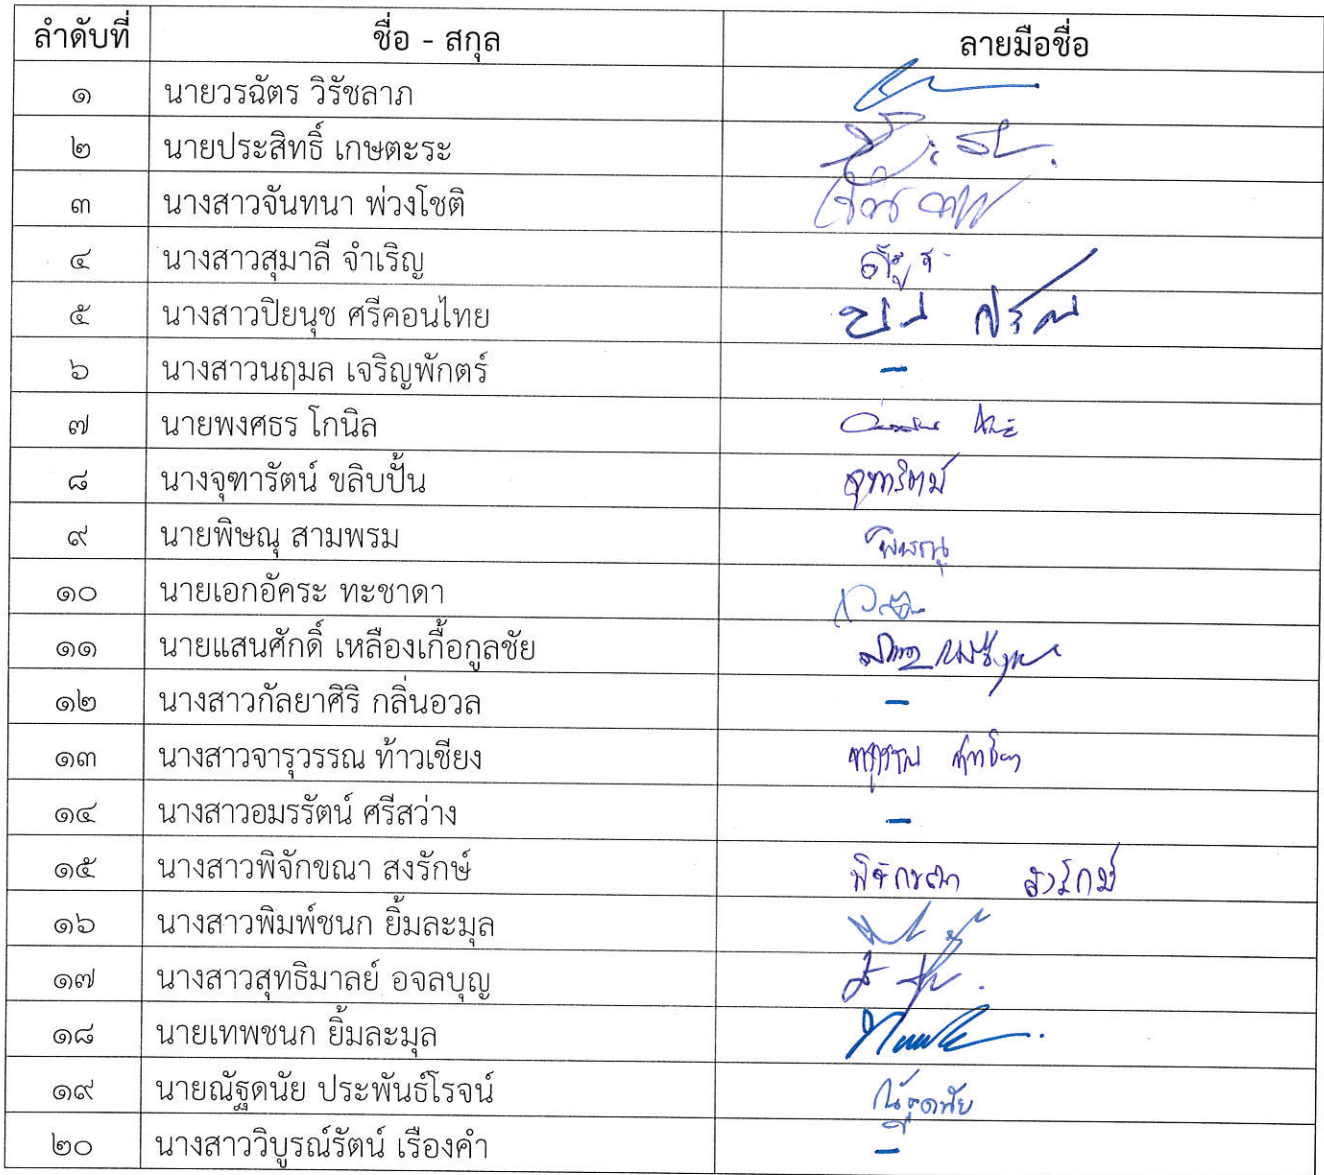 ลำดับที่ ชื่อ - สกุล ลายมือชื่อ
๑ นายวรฉัตร วิรัชลาภ
๒ นายประสิทธิ์ เกษตะระ
๓ นางสาวจันทนา พ่วงโชติ
๔ นางสาวสุมาลี จำเริญ
๕ นางสาวปิยนุช ศรีคอนไทย
๖ นางสาวนฤมล เจริญพักตร์ -
๗ นายพงศธร โกนิล
๘ นางจุฑารัตน์ ขลิบปั้น จุฑารัตน์
๙ นายพิษณุ สามพรม พิษณุ
๑๐ นายเอกอัคระ ทะชาดา
๑๑ นายแสนศักดิ์ เหลืองเกื้อกูลชัย
๑๒ นางสาวกัลยาศิริ กลิ่นอวล -
๑๓ นางสาวจารุวรรณ ท้าวเชียง จารุวรรณ ท้าวเชียง
๑๔ นางสาวอมรรัตน์ ศรีสว่าง -
๑๕ นางสาวพิจักขณา สงรักษ์ พิจักขณา สงรักษ์
๑๖ นางสาวพิมพ์ชนก ยิ้มละมุล
๑๗ นางสาวสุทธิมาลย์ อจลบุญ
๑๘ นายเทพชนก ยิ้มละมุล
๑๙ นายณัฐดนัย ประพันธ์โรจน์ ณัฐดนัย
๒๐ นางสาววิบูรณ์รัตน์ เรืองคำ -